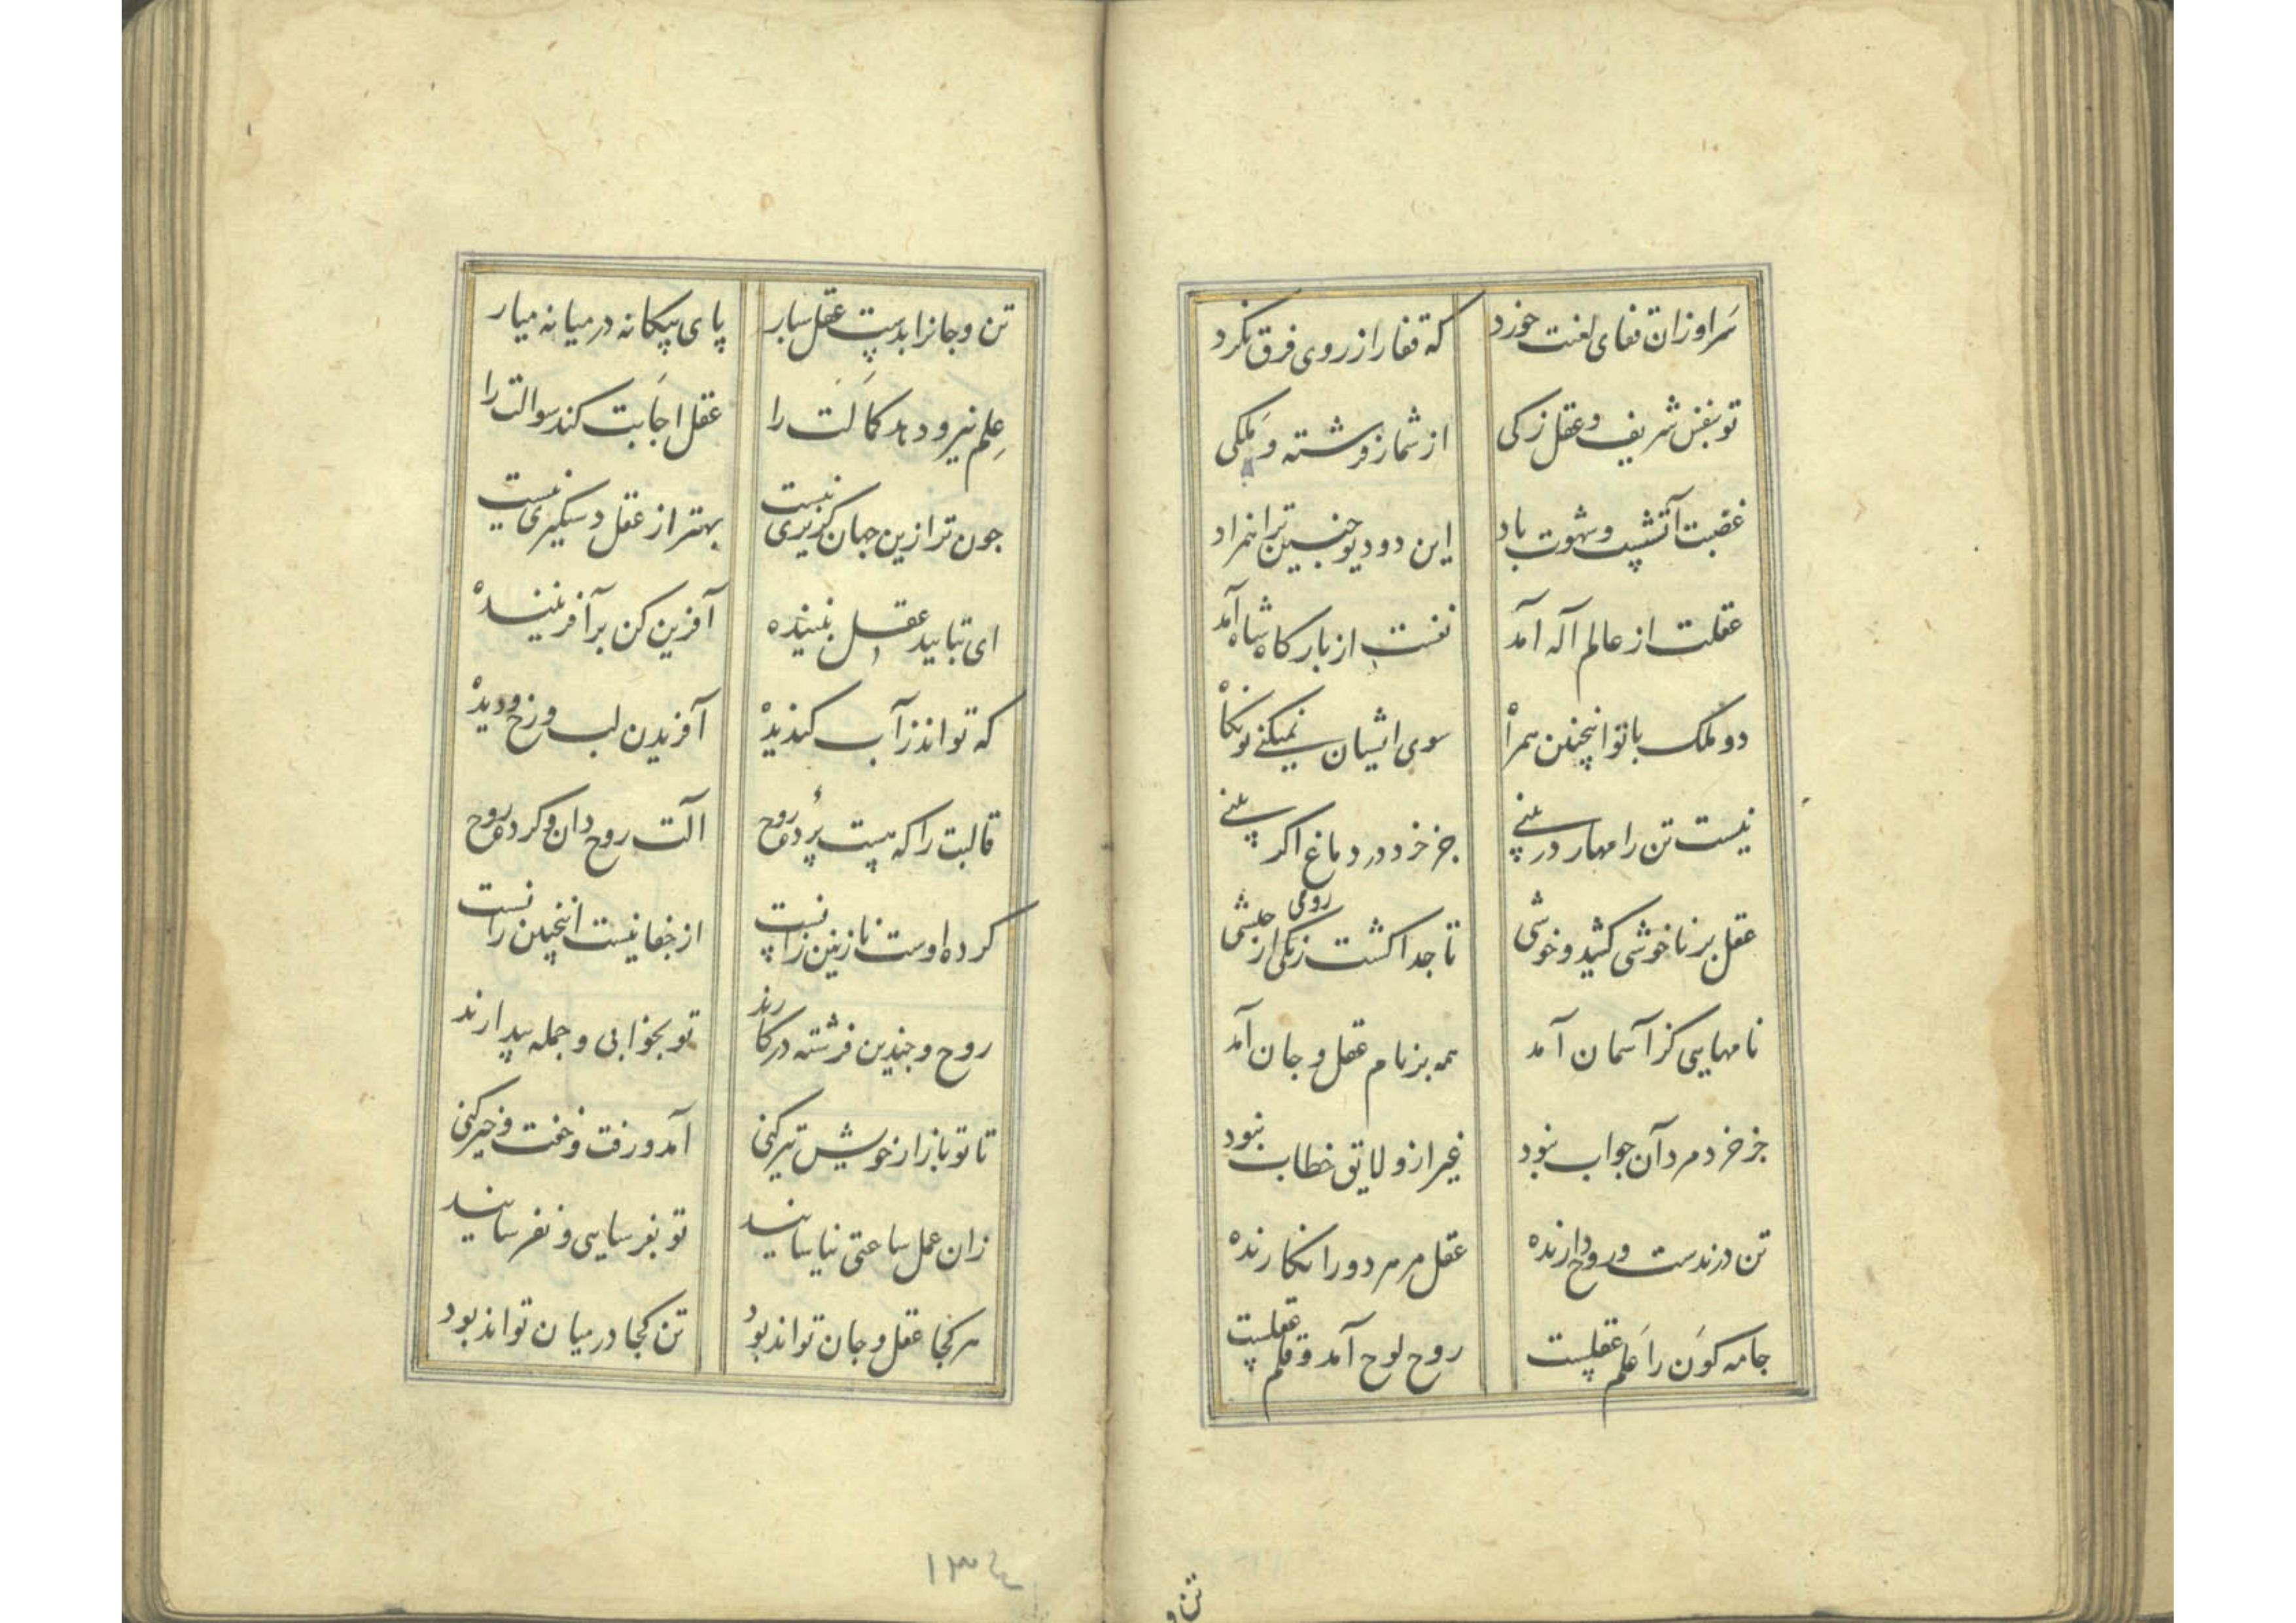 سر او زان قفای لعنت خورد که قفا را ز روی فرق نکرد
تو بنفس شریف و عقل زکی از شمار فرشته و ملکی
غضبت آتشست و شهوت باد این دو دیو جنین ترا همزاد
عقلت از عالم اله آمد نفست از بارکاه شاه آمد
دو ملک با تو اینچنین همراه سوی ایشان نمیکنی تو نکاه
نیست تن را مهار در بینی جز خرد در دماغ اکر بینی
عقل بر ناخوشی کشید و خوشی تا جدا کشت رومی از حبشی
نامهایی کز آسمان آمد همه بر نام عقل و جان آمد
جز خرد مرد آن جواب نبود غیر ازو لایق خطاب نبود
تن درندست و روح دارنده عقل مر هر دو را نکارنده
جامه کون را علم عقلست روح لوح آمد و قلم عقلست
تن و
تن و جانرا بدست عقل سپار پای بیکانه در میانه میار
علم نیرو دهد کمالت را عقل اجابت کند سوالت را
جون ترا زین جهان کزیری نیست بهتر از عقل دستکیری نیست
ای بتایید عقل بیننده آفرین کن بر آفریننده
که تواند ز آب کندیده آفریدن لب و رخ و دیده
قالبت را که هست پرده روح آلت روح دان و کرده روح
کرده اوست نازنین زانست از خفا نیست اینچنین رانست
روح و جندین فرشته در کارند تو بخوابی و جمله بیدارند
تا تو بازار خویش تیز کنی آمد و رفت و خفت و خیز کنی
زان عمل ساعتی نیاسایند تو بفرسایی و نفرسایند
هر کجا عقل و جان تواند بود تن کجا در میان تواند بود
۱۳۴